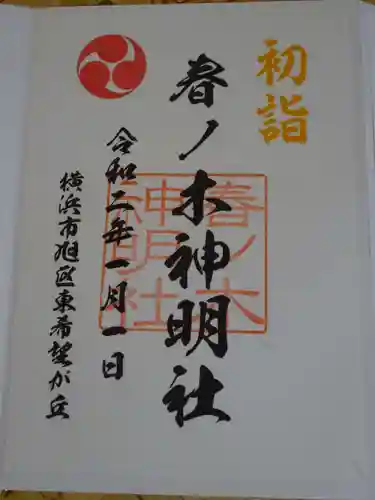 初詣
春ノ木神明社
令和二年一月一日
横浜市旭区東希望が丘
春ノ木
神明社